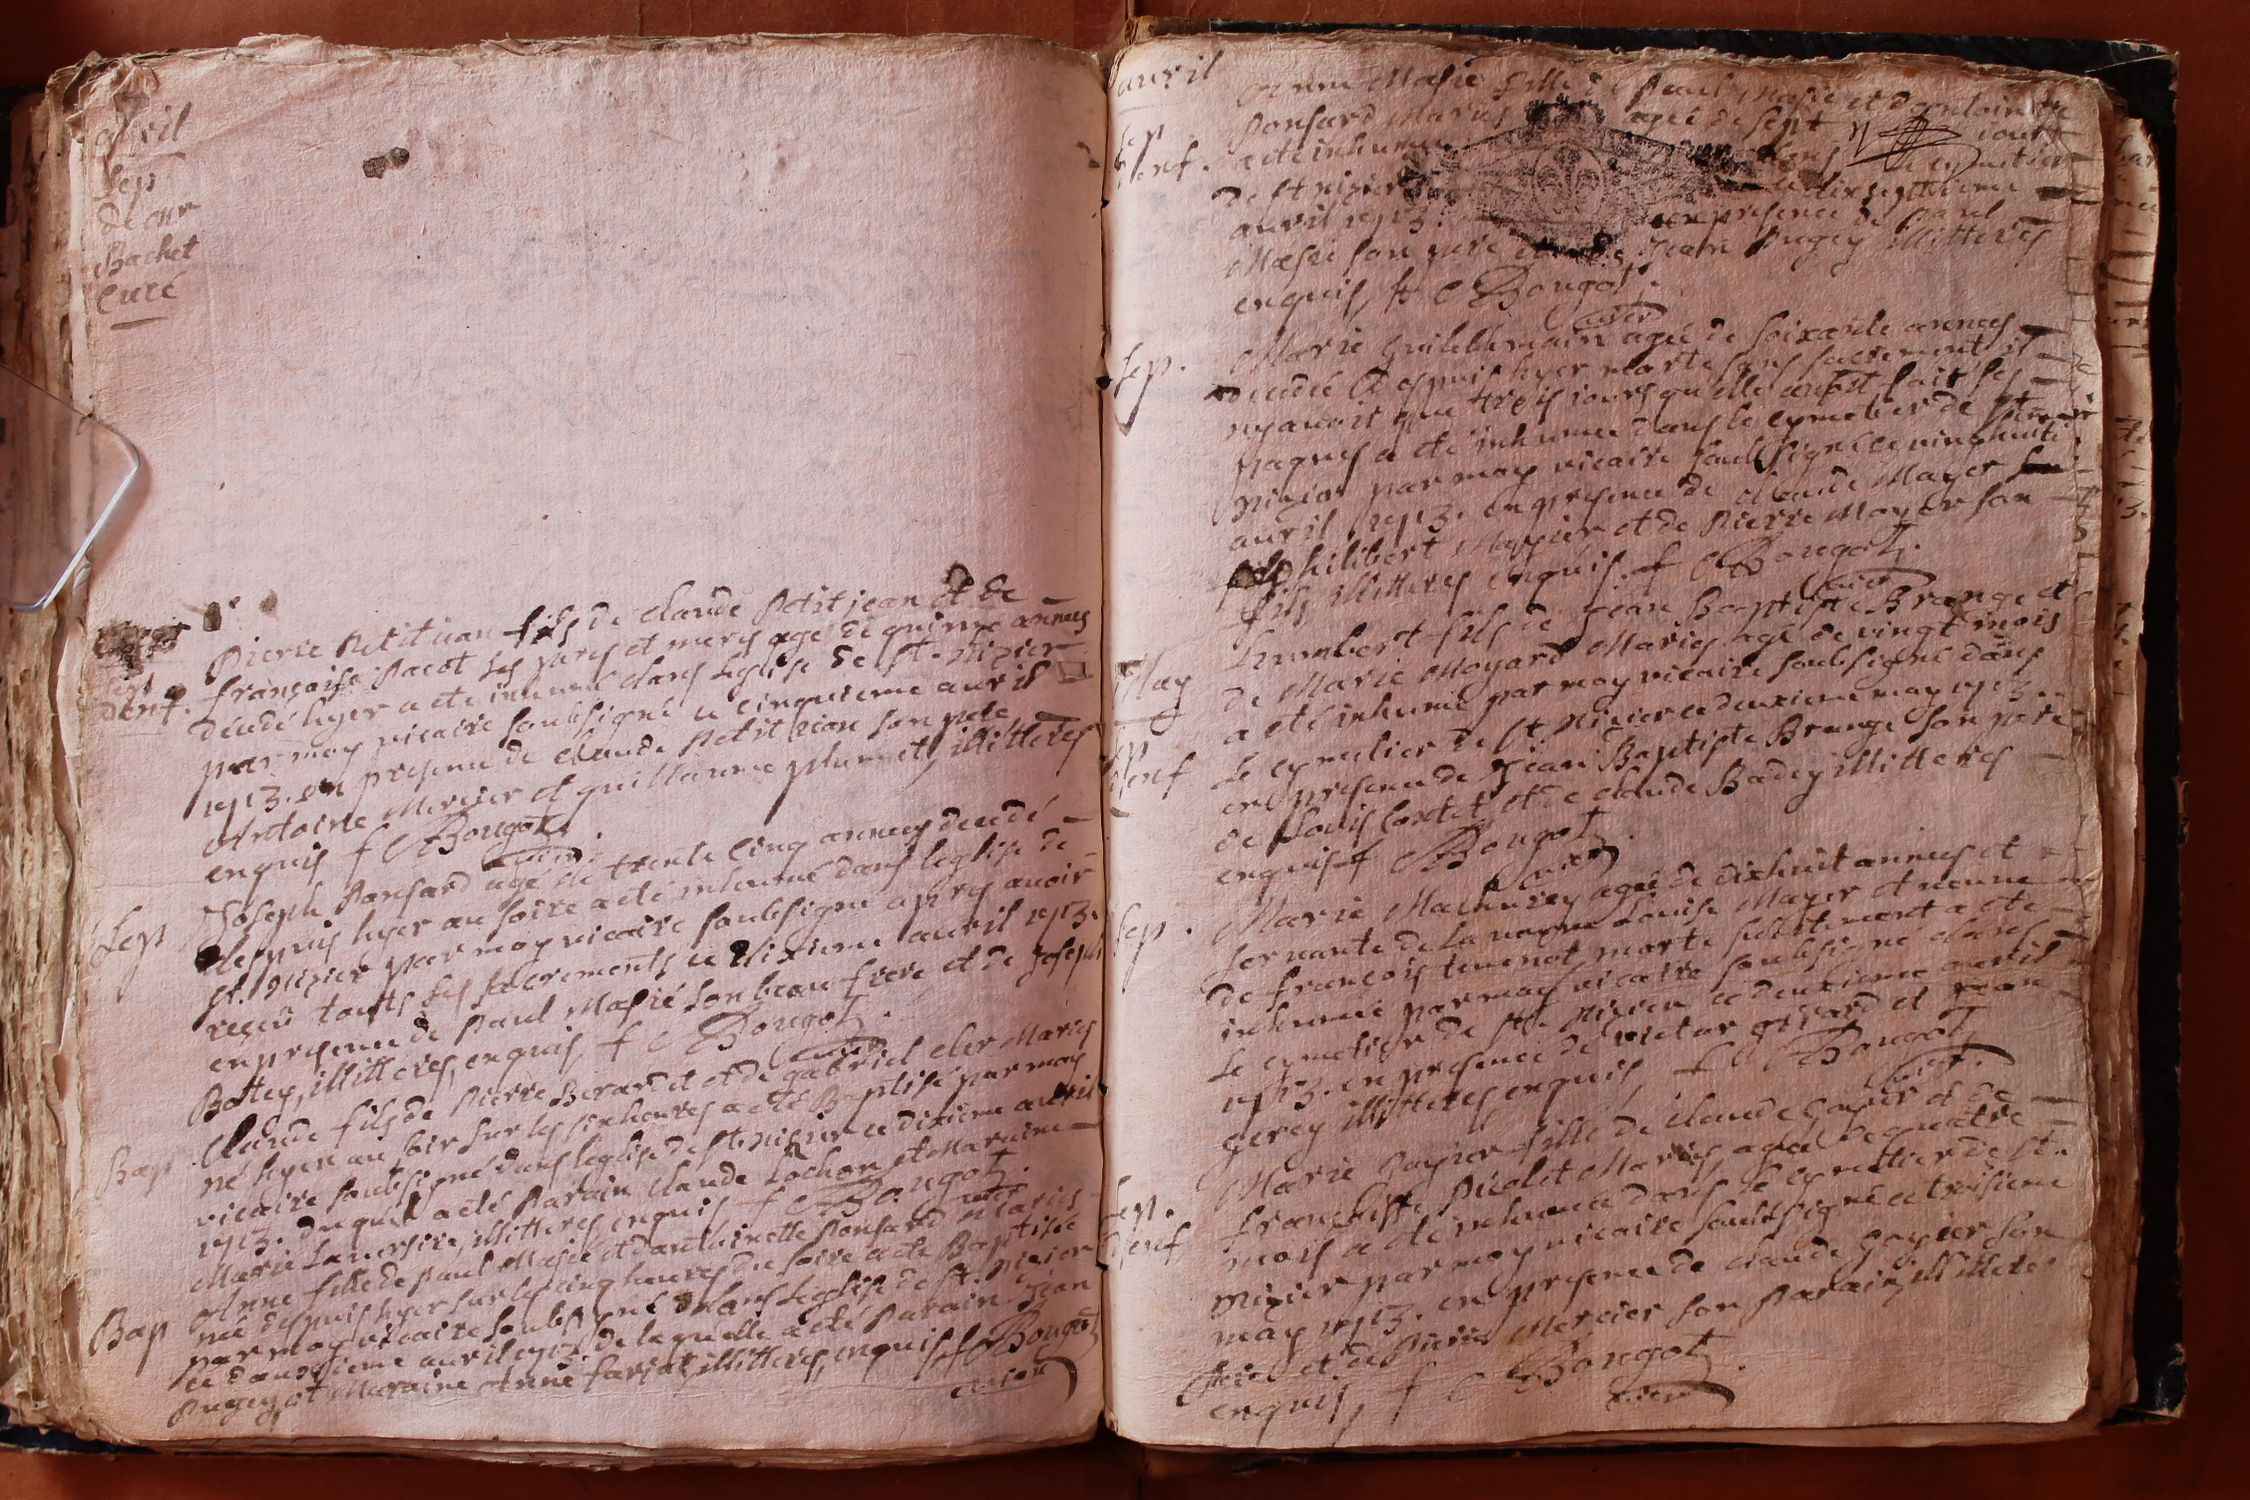 avril
Sep
de mr
Bachet
Curé
Pierre Petitiean fils de claude Petitjean et de
Sep
françoise Pacot ses peres et meres agé de quinze années
denf.
décédé hyer a ete inhumé dans leglise de St. Nizier
par moy vicaire soubsigné ce cinquieme avril
1713. en presence de claude Petitiean son pere
Antoine Mercier et guillaume plumet, illitteres
enquis f C Bougot
vicre
Sep
Joseph Ponsard agé de trente cinq années decedé
despuis hyer au soire a eté inhumé dans leglise de
St. Nizier par moy vicaire soubsigné apres avoir
reçeu touts ses sacrements ce dixieme avril 1713.
en presence de Paul Masié son beau frere et de Joseph
Bottey, illitteres, enquis, f C Bougot
Bap
Claude fils de Pierre Berardet et de gabriel cler Maries
né hyer au soir sur les six heures a eté Baptisé par moy
vicaire soubsigné dans leglise de st. Nizier ce dixieme avril
1713. duquel a eté Parain Claude Lochon et Maraine
Marie Laversire, illitteres enquis f C Bougot
Bap
Anne fille de paul Masié et dantoinette Ponsard Mariés
née despuis hyer sur les cinq heures du soire a eté Baptisée
par moy vicaire soubsigné dans leglise de st. Nizier
ce douzieme avril 1713 de laquelle a eté Parain Jean
Pugey, et Maraine Anne farjat, illitteres, enquis f C Bougot
vicre
avril
Anne Masié fille de Paul Masié et dantoinette
Sep
Ponsard Maries agée de sept iours
denf.
a eté inhumée dans le cymetier
de st Nizier ce dixseptieme
avril 1713. en presence de Paul
Masié son pere et de Jean Pugey illitteres
enquis, f C Bougot.
vicre
Sep.
Marie guilleemain agée de soixante années
decedée despuis hyer morte sans sacrement il
ny avoit que trois iours qu'elle avoit fait ses
paques a eté inhumée dans le cymetier de st
Nizier par moy vicaire soubsigné ce vinghuite
avril 1713. en presence de claude Mayer
philibert Mercier et de Pierre Mayer son
fils illitteres enquis. f C Bougot.
vicre
May
humbert fils de Jean Baptiste Brange et
de Marie Moyard Maries agé de vingt mois
Sep
a eté inhumé par moy vicaire soubsigné dans
denf
le cymetier de st Nizier ce deuxieme may 1713.
en presence de Jean Baptiste Brange son pere
de Louis Contet et de claude Badey illitteres
enquis f C Bougot.
vicre
Sep.
Marie Mathurey agée de dixhuit années et
servante de la Louise Mayer et
de francois tenenot morte subitement a ete
inhumée par moy vicaire soubsigné dans
le cymetier de st. Nizier ce deuxieme avril
1713. en presence de victor givard et Jean
gerey illitteres enquis, f C Bougot
vicre.
Marie Goyier fille de Claude Goyier et de
Sep.
francoise Picolet Maries agée de quatre
denf
mois a eté inhumée dans le cymetier de st.
Nizier par moy vicaire soubsigné ce troisieme
may 1713. en presence de claude Goyier son
Pere et de Pierre Mercier son Parain illitteres
enquis, f C Bougot.
vicre